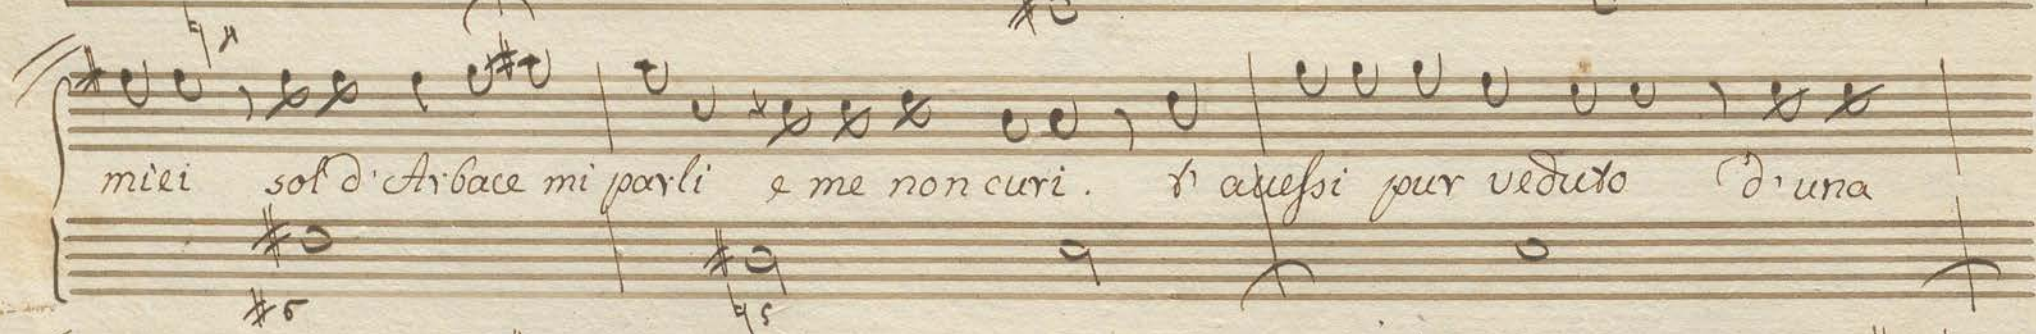 miei sol d'Arbace mi parli e me non curi. t'auessi pur veduto d'una
#6 ♮5